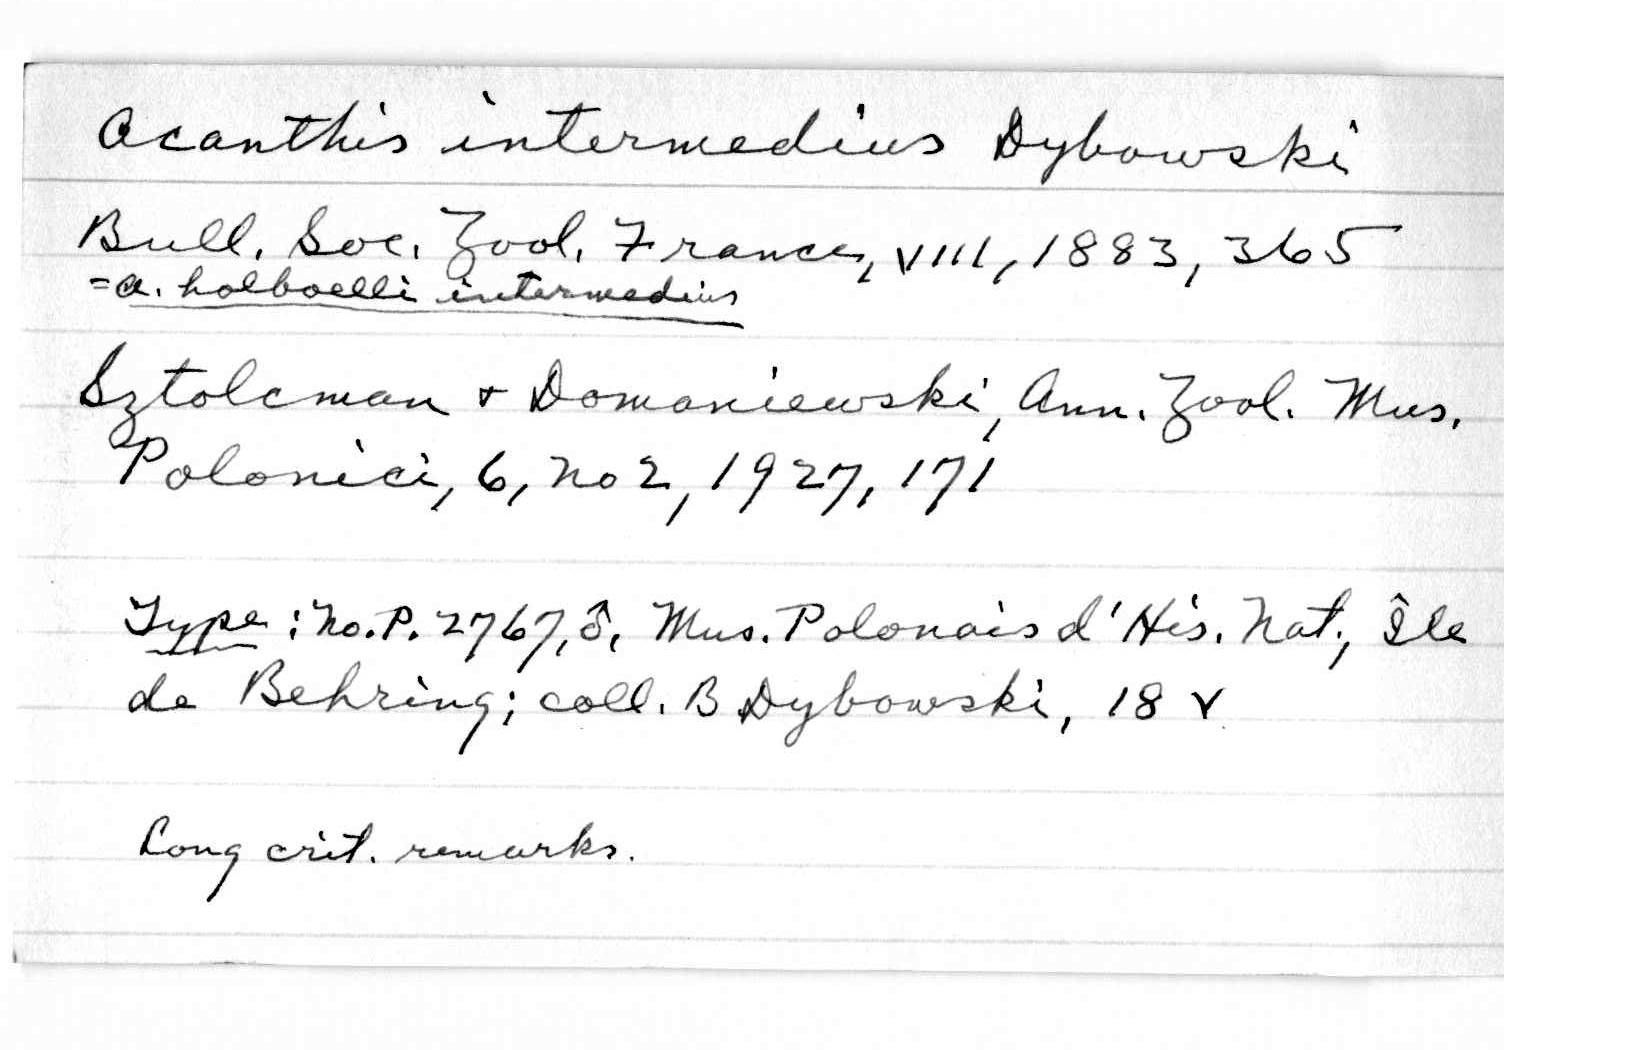 Acanthis intermedius Dybowski
Bull. Soc. Zool. France, VIII, 1883, 365
=A. holboelli intermedius
Sztolcman + Domaniewski, Ann. Zool. Mus.
Polonici, 6, no 2, 1927, 171
Type: No. P. 2767, ♂, Mus. Polonais d'His. Nat., Île
de Behring; coll. B Dybowski, 18 V
Long crit. remarks.